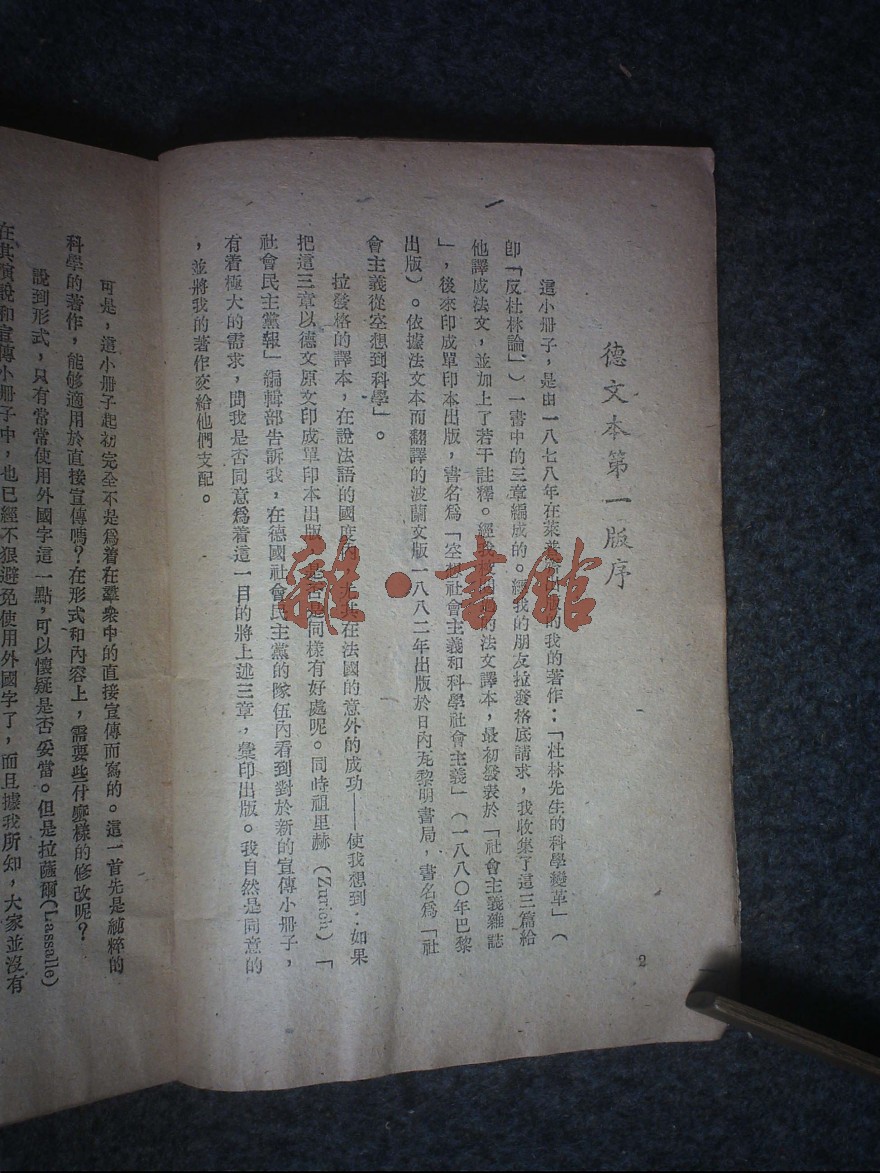 德文本第一版序
這小册子，是由一八七八年在萊 的我的著作：「杜林先生的科學變革」（
卽「反杜林論」）一書中的三章編成的。經我的朋友拉發格底請求，我收集了這三篇給
他譯成法文，並加上了若干註釋。經 的法文譯本，最初發表於「社會主義雜誌
」，後來印成單印本出版，書名爲「空想社會主義和科學社會主義」（一八八〇年巴黎
出版）。依據法文本而翻譯的波蘭文版一八八二年出版於日內瓦黎明書局，書名爲「社
會主義從空想到科學」。
拉發格的譯本，在說法語的國度內 在法國的意外的成功——使我想到：如果
把這三章以德文原文印成單印本出版 是否是同樣有好處呢。同時祖里赫（Zurich）「
社會民主黨報」編輯部告訴我，在德國社會民主黨的隊伍內看到對於新的宣傳小册子，
有着極大的需求，問我是否同意爲着這一目的將上述三章，彙印出版。我自然是同意的
，並將我的著作交給他們支配。
可是，這小册子起初完全不是爲着在羣衆中的直接宣傳而寫的。這一首先是純粹的
科學的著作，能够適用於直接宣傳嗎？在形式和內容上，需要些什麽樣的修改呢？
說到形式，只有常常使用外國字這一點，可以懷疑是否妥當。但是拉薩爾（Lassalle）
在其演說和宣傳小册子中，也已經不狠避免使用外國字了，而且據我所知，大家並沒有
2
雜·書館